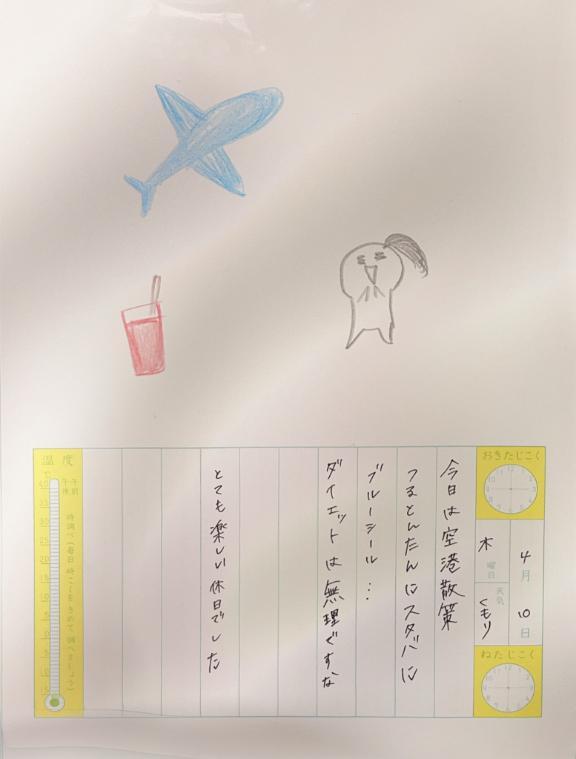 おきたじこく
4月10日
木曜日
天気 くもり
ねたじこく
今日は空港散策
つるとんたんにスタバに
ブルーシール…
ダイエットは無理ですな
とても楽しい休日でした
温度
午前
午後
時調べ(毎日時こくをきめて調べましょう)